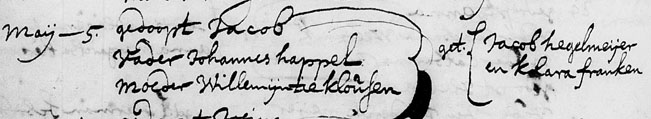 Maÿ — 5. gedoopt Jacob
Vader Johannes happel
Moeder Willemijntie klousen
get. { Jacob hegelmeijer
en klara franken